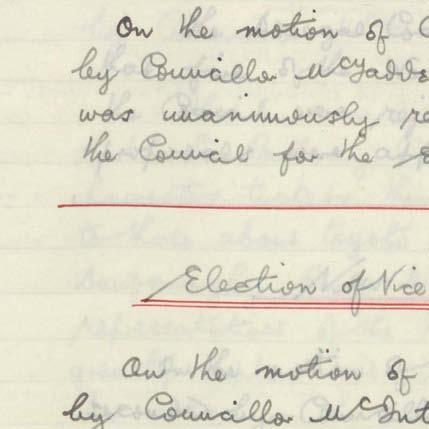 On the motion of Co
by Councillor McFadde
was unanimously re
the Council for the
Election of Vice
On the motion of
by Councillor McInt